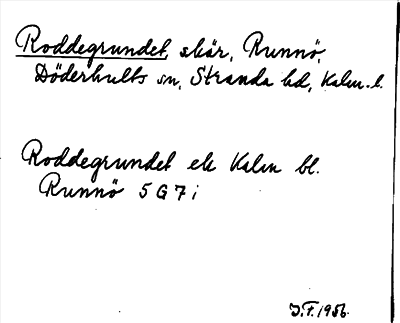 Roddegrundet, skär, Runnö,
Döderhults sn, Stranda hd, Kalm. l.
Roddegrundet ek Kalm bl.
Runnö 5 G 7 i
J.F. 1956.